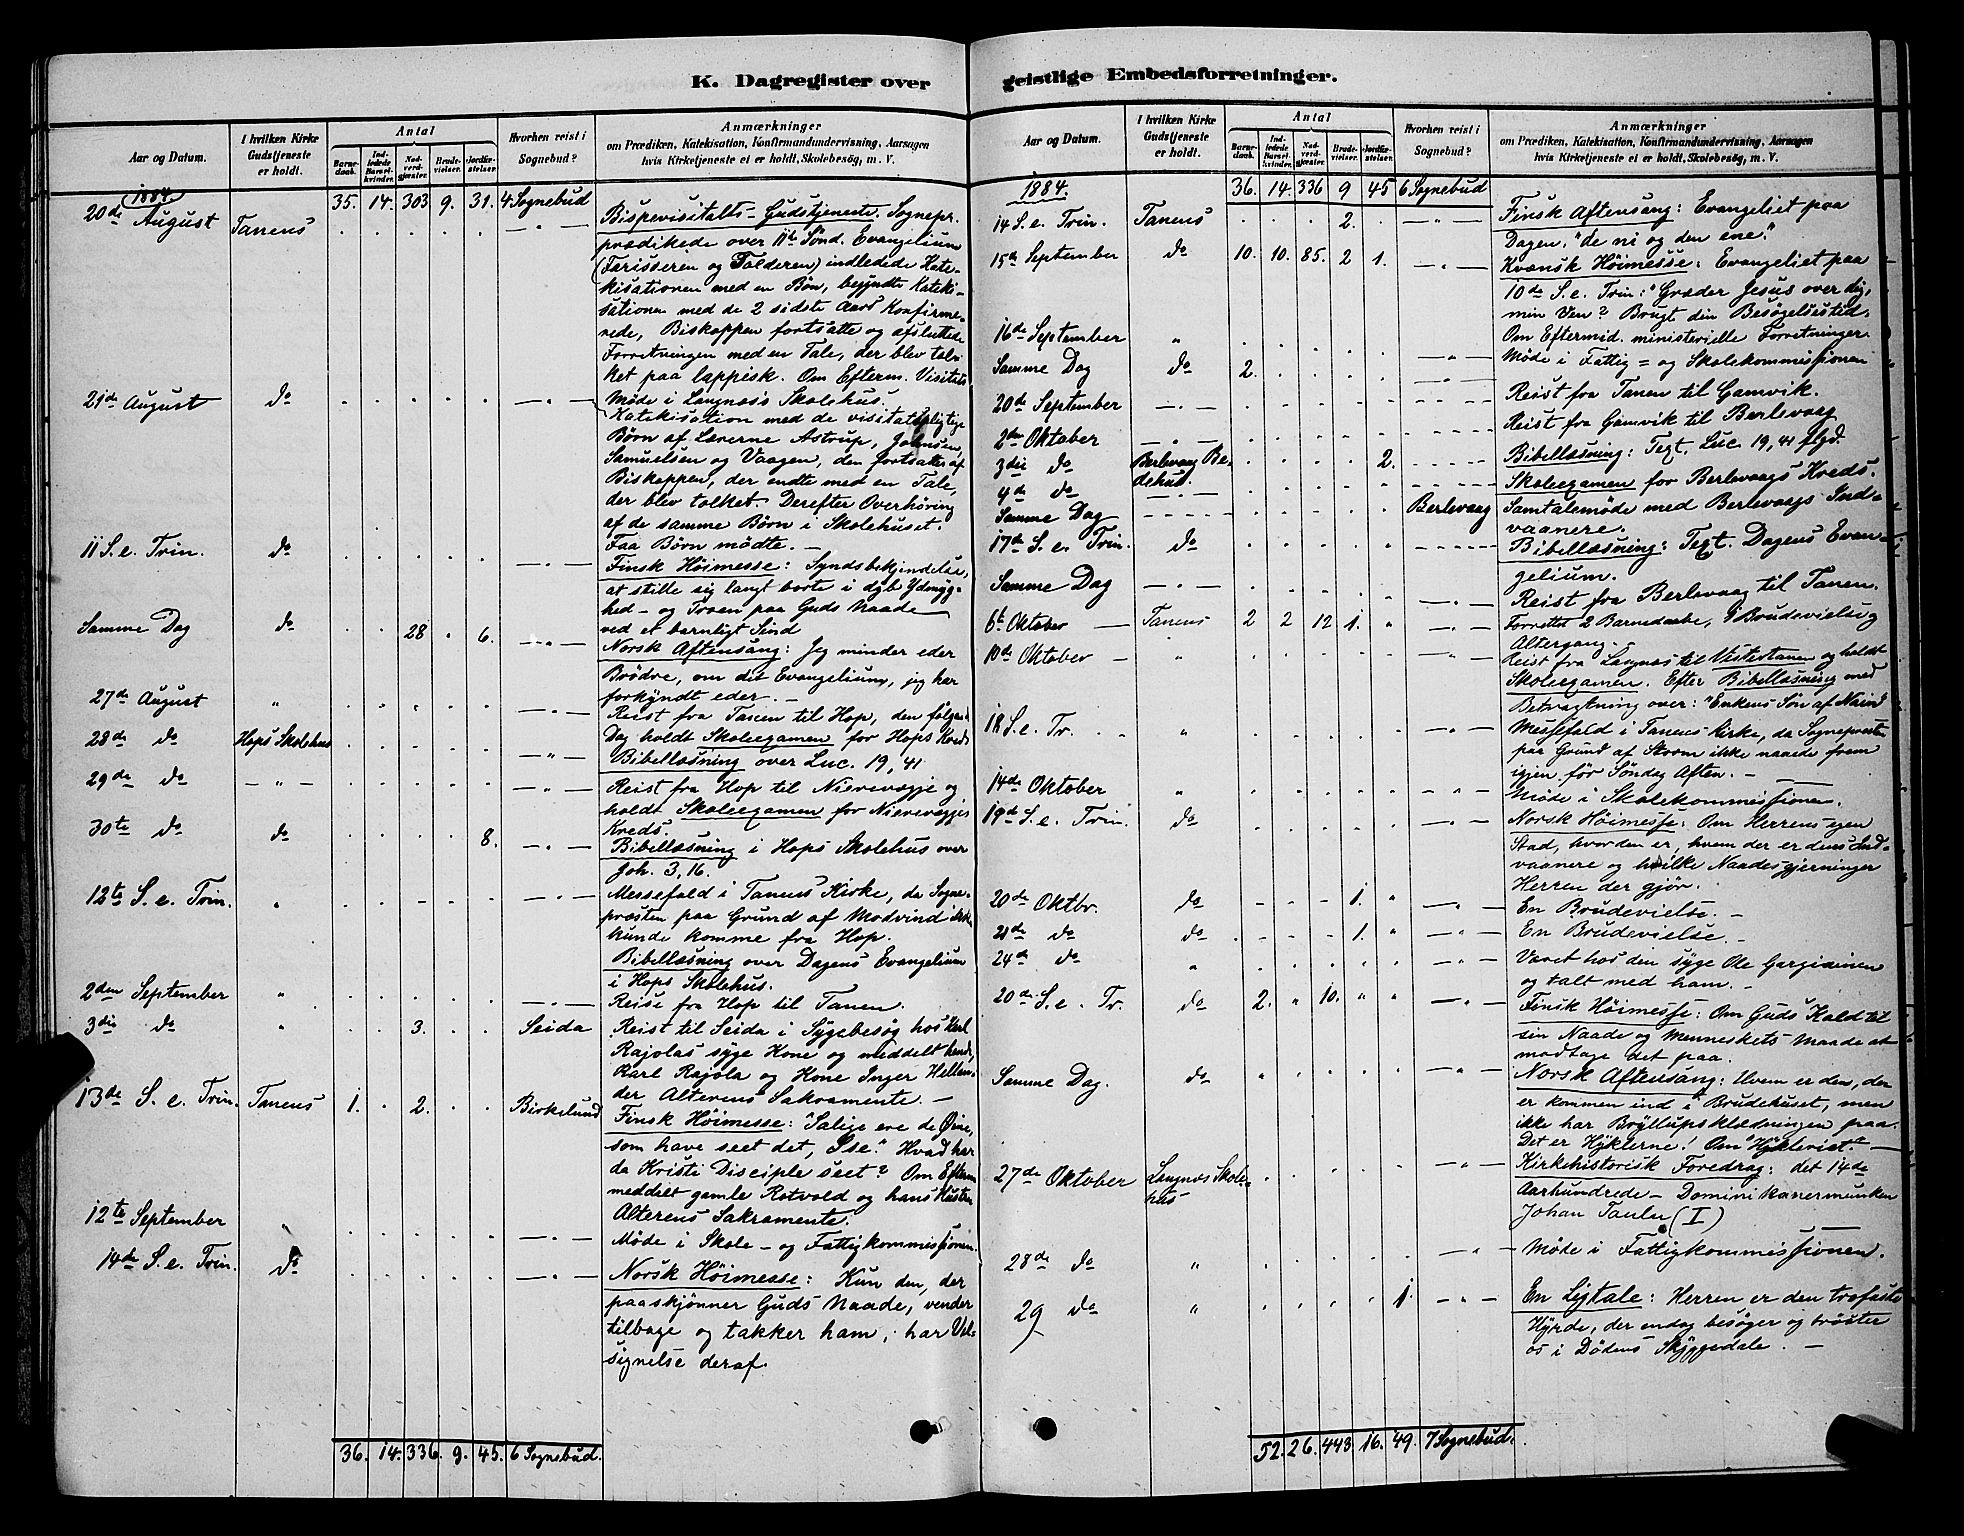 K. Dagregister over
Aar og Datum.
I hvilken Kirke
Gudstjeneste
er holdt.
Antal
Barne-
daab.
Ind-
ledede
Barsel-
kvinder.
Nad-
verd-
gjæster.
Brude-
vielser.
Jordfæ-
stelser.
Hvorhen reist i
Sognebud?
Anmærkninger
om Prædiken, Katekisation, Konfirmandundervisning, Aarsagen
hvis Kirketjeneste ei er holdt, Skolebesög, m. V.
1884.
35. 14. 303 9. 31. 4 Sognebud
20de August Tanens
Bispevisitatts- Gudstjeneste. Sognepr.
prædikede over 11te Sönd. Evangelium
(Fariseeren og Tolderen) indledede Kate-
kisationen med en Bøn, begyndte Kateki-
sationen med de 2 sidste Aars Konfirme-
rede, Biskoppen fortsatte og afsluttede
Forretningen med en Tale, der blev tol-
ket paa lappisk. Om Efterm. Visitats
21de August do
Møde i Langnæs Skolehus.
Katekisation med de visitatspligtige
Børn af Lærerne Astrup, Johnsen,
Samuelsen og Vaagen, den fortsattes af
Biskoppen, der endte med en Tale,
der blev tolket. Derefter Overhøring
af de samme Børn i Skolehuset.
Faa Børn mødte. —
11 S. e. Trin. do
Finsk Höimesse: Syndsbekjendelse,
at stille sig langt borte i dyb Ydmyg-
hed – og Troen paa Guds Naade
ved et barnligt Sind
Samme Dag do 28 6.
Norsk Aftensang: Jeg minder eder
Brödre, om det Evangelium, jeg har
forkyndt eder. —
27de August "
Reist fra Tanen til Hop, den følgende
28de do Hops Skolehus
Dag holdt Skoleexamen for Hops Kreds
Bibellæsning over Luc. 19, 41
29de do — " —
Reist fra Hop til Nierevegje og
holdt Skoleexamen for Nierevegjes
Kreds.
30te do do 8.
Bibellæsning i Hops Skolehus over
Joh. 3, 16.
12te S. e. Trin. "
Messefald i Tanens Kirke, da Sogne-
præsten paa Grund af Modvind ikke
kunde komme fra Hop.
Bibellæsning over Dagens Evangelium
i Hops Skolehus.
2den September "
Reise fra Hop til Tanen.
3die do " 3. Seida
Reist til Seida i Sygebesøg hos Karl
Rajolas syge Kone og meddelt hende,
Karl Rajola og Kone Inger Hellan-
der Alterens Sakramente. —
13de S. e. Trin. Tanens 1. 2. Birkelund
Finsk Höimesse: "Salige ere de Øine,
som have seet det, I se." Hvad har
da Kristi Disciple seet? Om Efterm
meddelt gamle Rotvold og hans Hustru
Alterens Sakramente.
12te September
Møde i Skole- og Fattigkommissionen.
14de S. e. Trin. do
Norsk Höimesse: Kun den, der
paaskjønner Guds Naade, vender
tilbage og takker ham, har Vel-
signelse deraf.
36. 14. 336. 9. 45. 6 Sognebud.
geistlige Embedsforretninger.
Aar og Datum.
I hvilken Kirke
Gudstjeneste
er holdt.
Antal
Barne-
daab.
Ind-
ledede
Barsel-
kvinder.
Nad-
verd-
gjæster.
Brude-
vielser.
Jordfæ-
stelser.
Hvorhen reist i
Sognebud?
Anmærkninger
om Prædiken, Katekisation, Konfirmandundervisning, Aarsagen
hvis Kirketjeneste ei er holdt, Skolebesög, m. V.
1884.
36. 14. 336 9 45 6 Sognebud
14 S. e. Trin. Tanens 2.
Finsk Aftensang: Evangeliet paa
Dagen, "de ni og den ene."
15de September do 10. 10. 85. 2 1.
Kvænsk Höimesse: Evangeliet paa
10de S. e. Trin: "Græder Jesus over dig,
min Ven? Brugt din Besøgelsestid.
Om Eftermid. ministerielle Forretninger
16de September "
Møde i Fattig= og Skolekommissionen
Samme Dag do 2.
20de September — " —
Reist fra Tanen til Gamvik.
2den Oktober — " —
Reist fra Gamvik til Berlevaag
3die do Berlevaag Be-
dehus. 2.
Bibellæsning: Text. Luc. 19, 41 flgd.
4de do
Skoleexamen for Berlevaags Kreds.
Samme Dag Berlevaag
Samtalemöde med Berlevaags Ind-
vaanere.
17de S. e. Trin. do
Bibellæsning: Text. Dagens Evan-
gelium.
Samme Dag — " —
Reist fra Berlevaag til Tanen.
6te Oktober — Tanens 2 2 12 1. "
Forrettet 2 Barnedaabe, 1 Brudevielse og
Altergang.
10de Oktober — "
Reist fra Langnæs til Vestertanen og holdt
Skoleexamen. Efter Bibellæsning med
Betragtning over: "Enkens Søn af Nain"
18 S. e. Tr. "
Messefald i Tanens Kirke, da Sognepræsten
paa Grund af Storm ikke naaede frem
igjen før Søndag Aften. —
14de Oktober "
Møde i Skolekommissionen.
19de S. e. Trin. do
Norsk Höimesse: Om Herrens egen
Stad, hvor den er, hvem der er dens Ind-
vaanere og hvilke Naadesgjerninger
Herren der gjør.
20de Oktbr. do 1. "
En Brudevielse. —
21de do do 1. "
En Brudevielse. —
24de do "
Været hos den syge Ole Gargidinen
og talt med ham. —
20de S. e. Tr. do 2. " 10. " "
Finsk Höimesse: Om Guds Kald til
sin Naade og Menneskets Maade at
modtage det paa.
Samme Dag. do
Norsk Aftensang: Hvem er den, der
er kommen ind i Brudehuset, men
ikke har Bryllupsklædningen paa.
Det er Hyklerne! Om "Hykleriet". —
27de Oktober Langnæs Skole-
hus
Kirkehistorisk Foredrag: det 14de
Aarhundrede – Dominikanermunken
Johan Tauler (I)
28de do "
Møde i Fattigkommissionen.
29 do " 1.
En Ligtale: Herren er den trofaste
Hyrde, der endog besøger og trøster
os i Dødens Skyggedale. —
52. 26. 443 16. 49. 7 Sognebud.